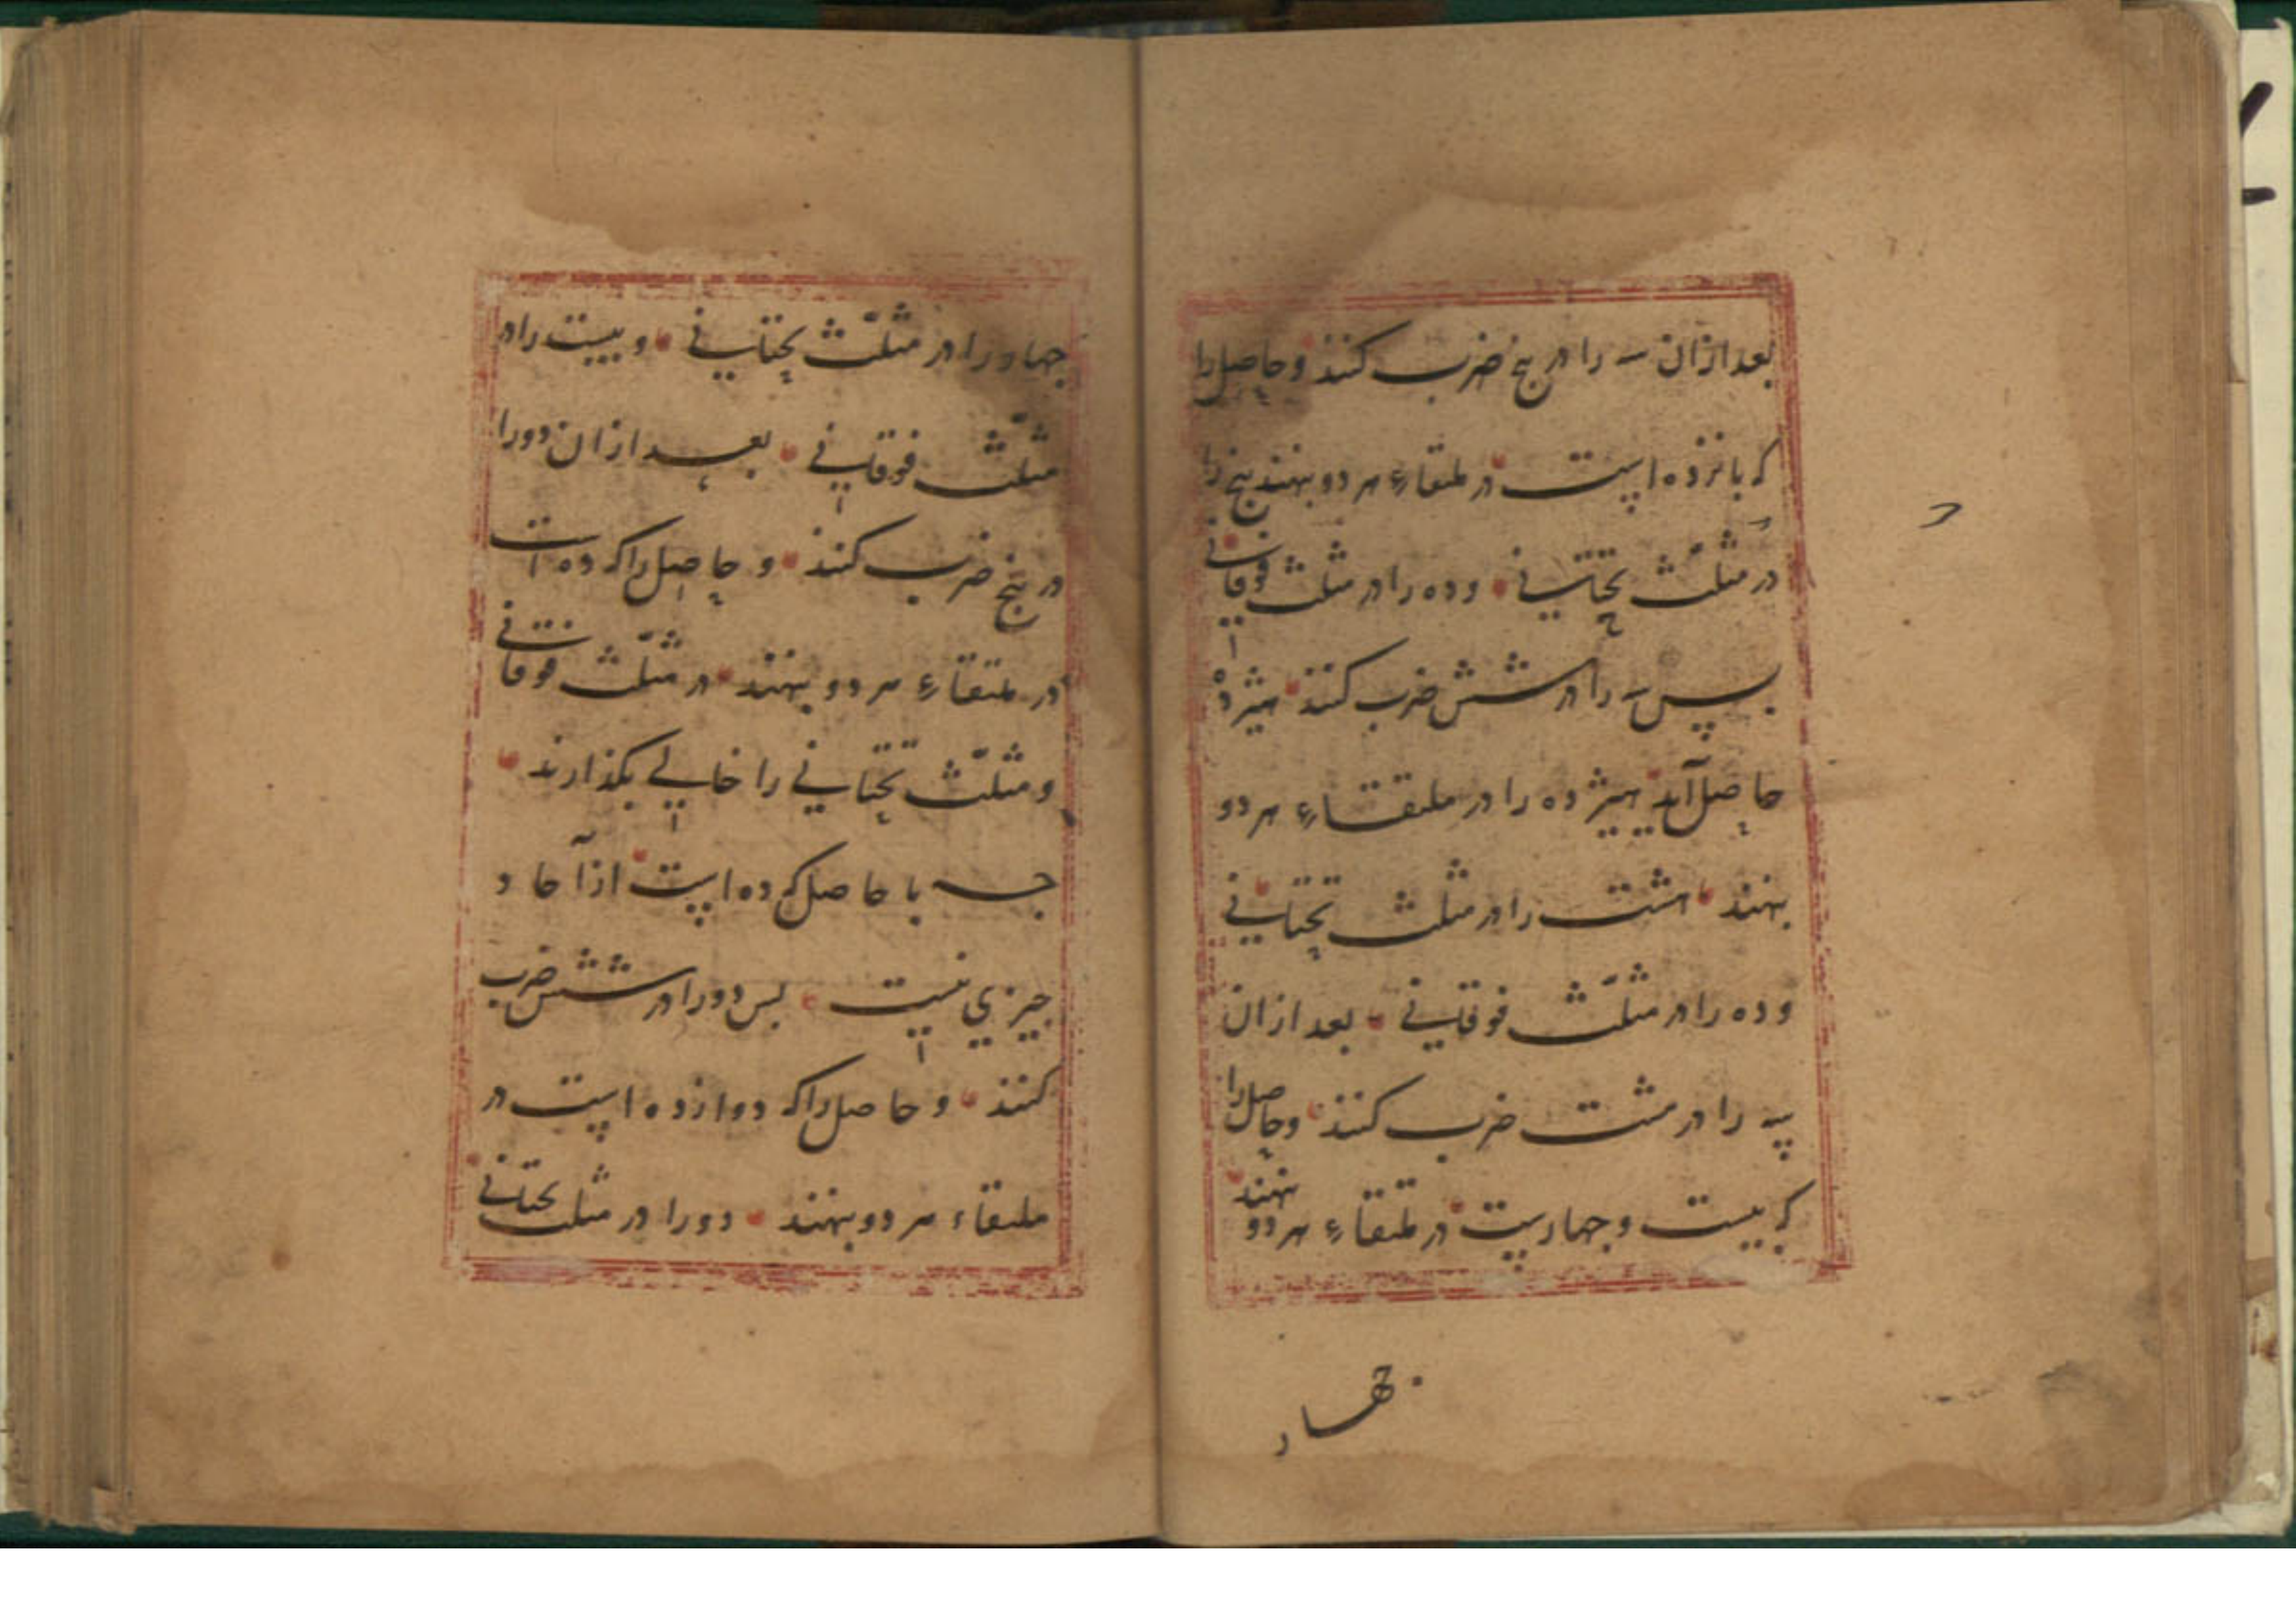 بعد ازان سه را در پنج ضرب کنند و حاصل را
که پانزده است در ملتقاء هر دو بنهند پنج را
در مثلّث تحتانی و ده را در مثلث فوقانی
پس سه را در شش ضرب کنند هیژده
حاصل آید هیژده را در ملتقاء هر دو
بنهند هشت را در مثلث تحتانی
و ده را در مثلّث فوقانی بعد ازان
سه را در هشت ضرب کنند و حاصل را
که بیست و چهارست در ملتقاء هر دو بنهند
چهار
چهار را در مثلّث تحتانی و بیست را در
مثلّث فوقانی بعد ازان دو را
در پنج ضرب کنند و حاصل را که ده است
در ملتقاء هر دو بنهند در مثلّث فوقانی
و مثلّث تحتانی را خالی بگذارند
چه با حاصل که ده است از آحاد
چیزی نیست پس دو را در شش ضرب
کنند و حاصل را که دوازده است در
ملتقاء هر دو بنهند دو را در مثلث تحتانی